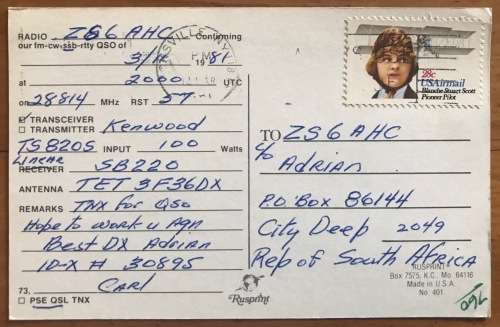 RADIO ZS6AHC Confirming
our fm-cw-ssb-rtty QSO of
81
at 2000 UTC
on 28814 MHz RST 57
☑ TRANSCEIVER
☐ TRANSMITTER Kenwood
TS820S INPUT 100 Watts
Linear
RECEIVER SB220
ANTENNA TET 3F36DX
REMARKS TNX For QSO
Hope to work u Agn
Best DX Adrian
ID-X # 30895
73. Carl
☐ PSE QSL TNX
Rusprint
PM
19
28c
USAirmail
Blanche Stuart Scott
Pioneer Pilot
TO ZS6AHC
c/o Adrian
P.O. Box 86144
City Deep 2049
Rep of South Africa
RUSPRINT
Box 7575, K.C. Mo. 64116
Made in U.S.A.
No. 401